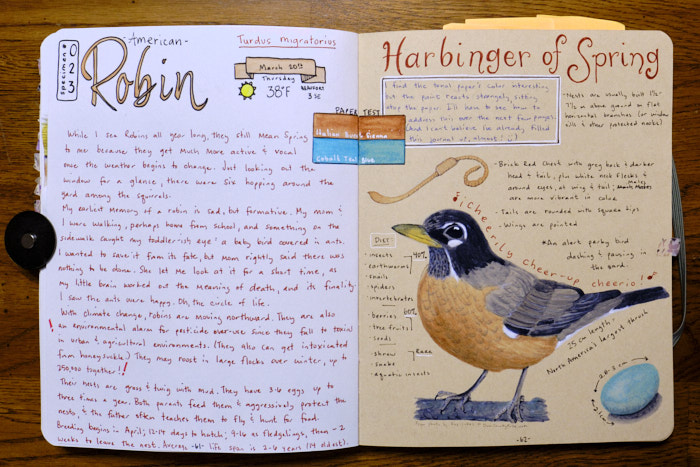 specimen #
023
-American-
Robin
Turdus migratorius
March 20th
Thursday
38°F
BEAUFORT
3 SE
PAPER TEST
Italian Burnt Sienna
Cobalt Teal Blue
While I see Robins all year long, they still mean Spring
to me because they get much more active & vocal
once the weather begins to change. Just looking out the
window for a glance, there were six hopping around the
yard among the squirrels.
My earliest memory of a robin is sad, but formative. My mom &
I were walking, perhaps home from school, and something on the
sidewalk caught my toddler-ish eye: a baby bird covered in ants.
I wanted to save it from its fate, but Mom rightly said there was
nothing to be done. She let me look at it for a short time, as
my little brain worked out the meaning of death, and its finality.
I saw the ants were happy. Oh, the circle of life.
With climate change, robins are moving northward. They are also
! an environmental alarm for pesticide over-use since they fall to toxins
in urban & agricultural environments. (They also can get intoxicated
from honeysuckle.) They may roost in large flocks over winter, up to
250,000 together!!
Their nests are grass & twigs with mud. They have 3-6 eggs up to
three times a year. Both parents feed them & aggressively protect the
nests, & the father often teaches them to fly & hunt for food.
Breeding begins in April; 12-14 days to hatch; 9-16 as fledgelings, then ~2
weeks to leave the nest. Average life span is 2-6 years (14 oldest).
-61-
Harbinger of Spring
I find the tonal paper's color interesting
but the paint reacts strangely, sitting
atop the paper. I'll have to see how to
address this over the next four pages.
And I can't believe I've already filled
this journal up, almost! :)
-Nests are usually built
above ground on flat
horizontal branches (or window
sills & other protected nooks)
-Brick Red Chest with grey back & darker
head & tail, plus white neck flecks &
around eyes, at wing & tail; males
are more vibrant in color.
-Tails are rounded with square tips
-Wings are pointed
cheerily cheer-up cheerio!
*An alert perky bird
dashing & pausing in
the yard.
DIET
-insects
-earthworms
-snails
-spiders
-invertebrates
40%
-berries
-tree fruits
-seeds
60%
-shrew
-snake
-aquatic insects
Rare
25 cm length!
North America's largest thrush
2.8-3 cm
~2 cm
-62-